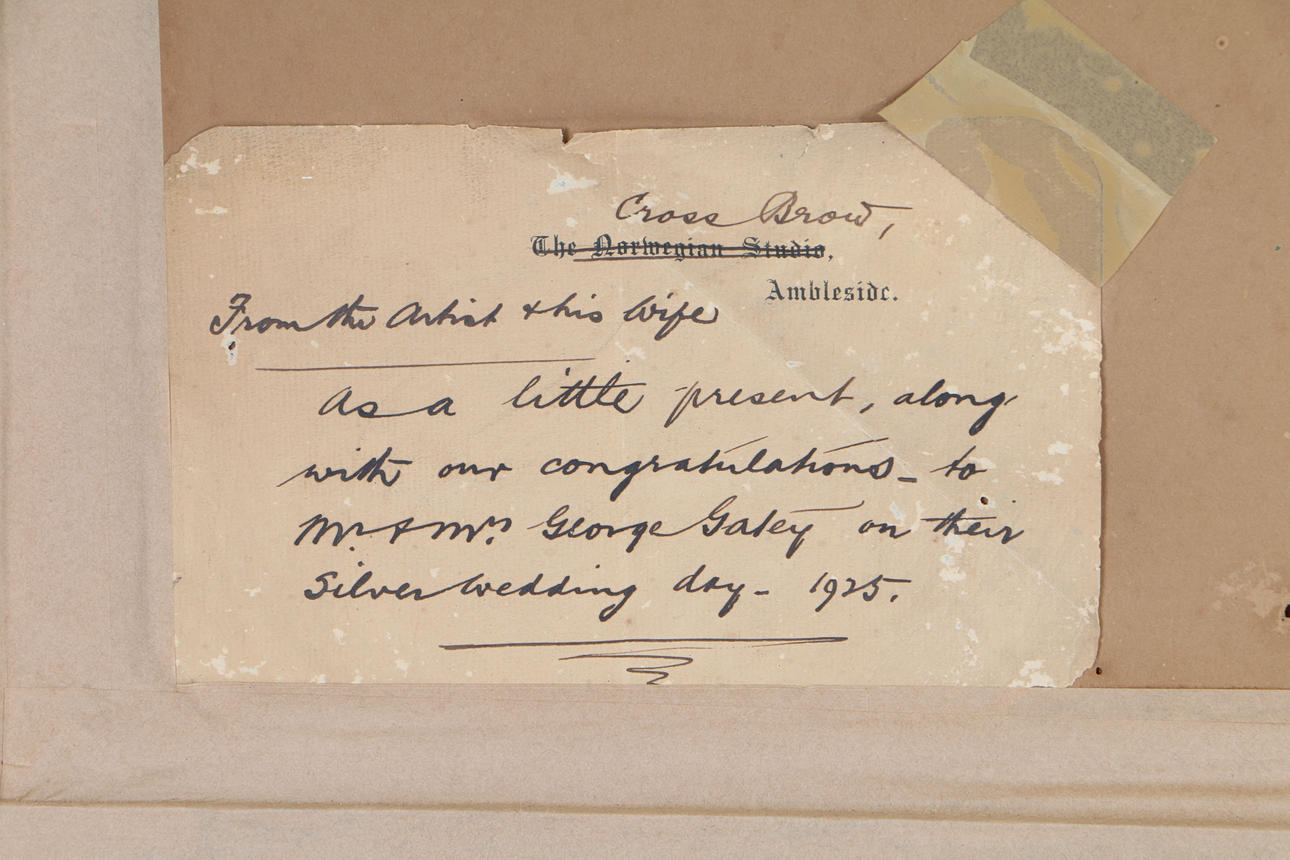 Cross Brow,
The Norwegian Studio,
Ambleside.
From the Artist & his Wife
As a little present, along
with our congratulations - to
Mr. & Mrs. George Gatey on their
Silver Wedding day - 1925.